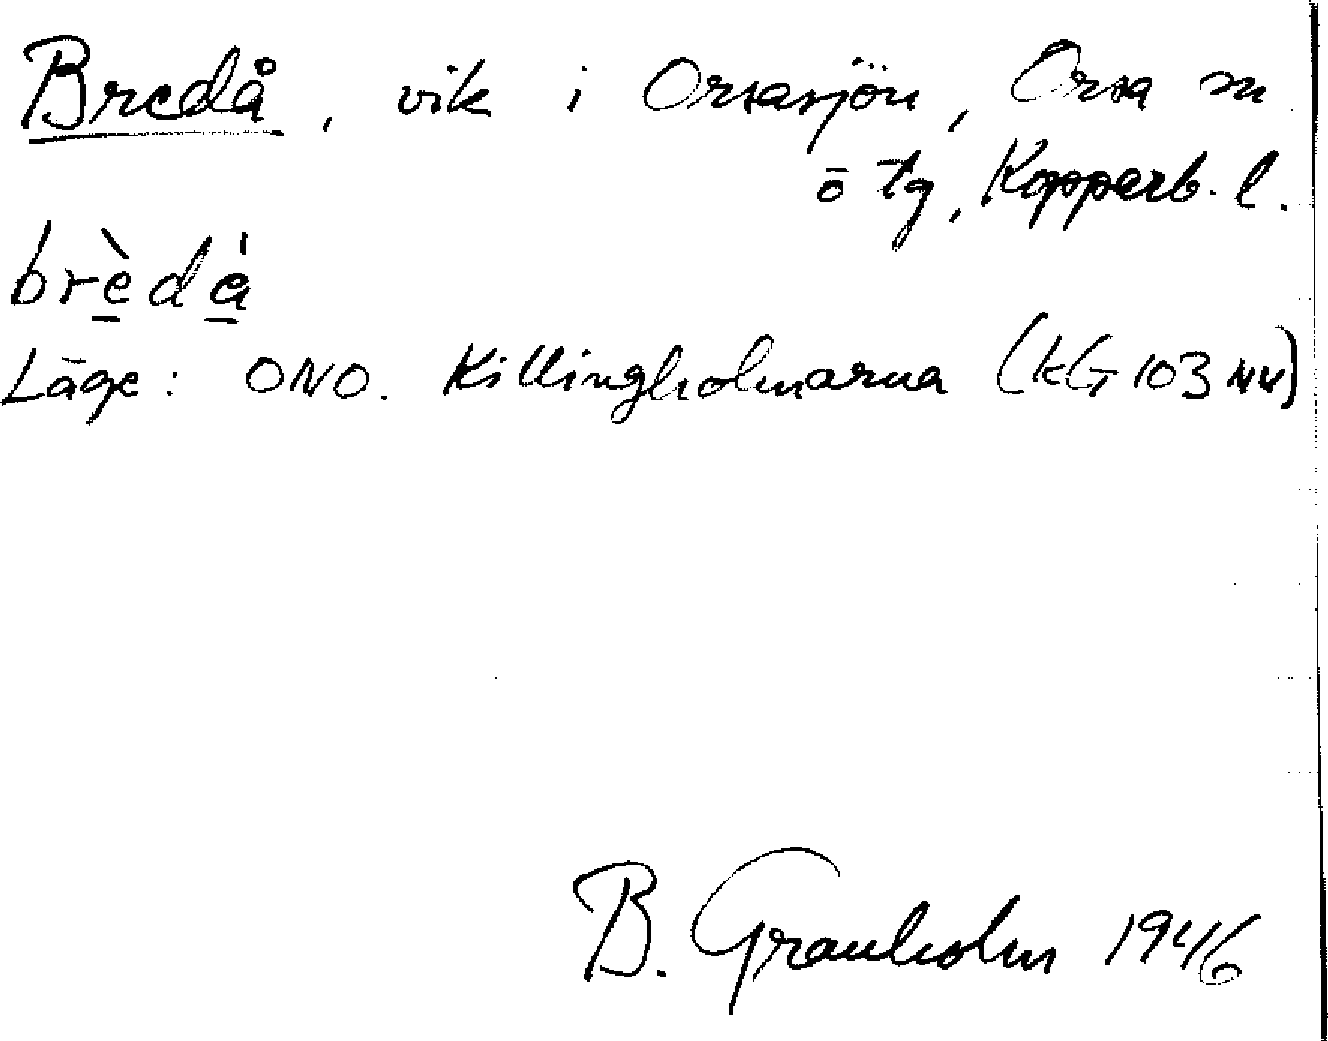 Bredå, vik i Orsasjön, Orsa sn
o tg, Kopparb. l.
brèdá
Läge: ONO. Killingholmarna (kG 103 NV)
B. Granholm 1946